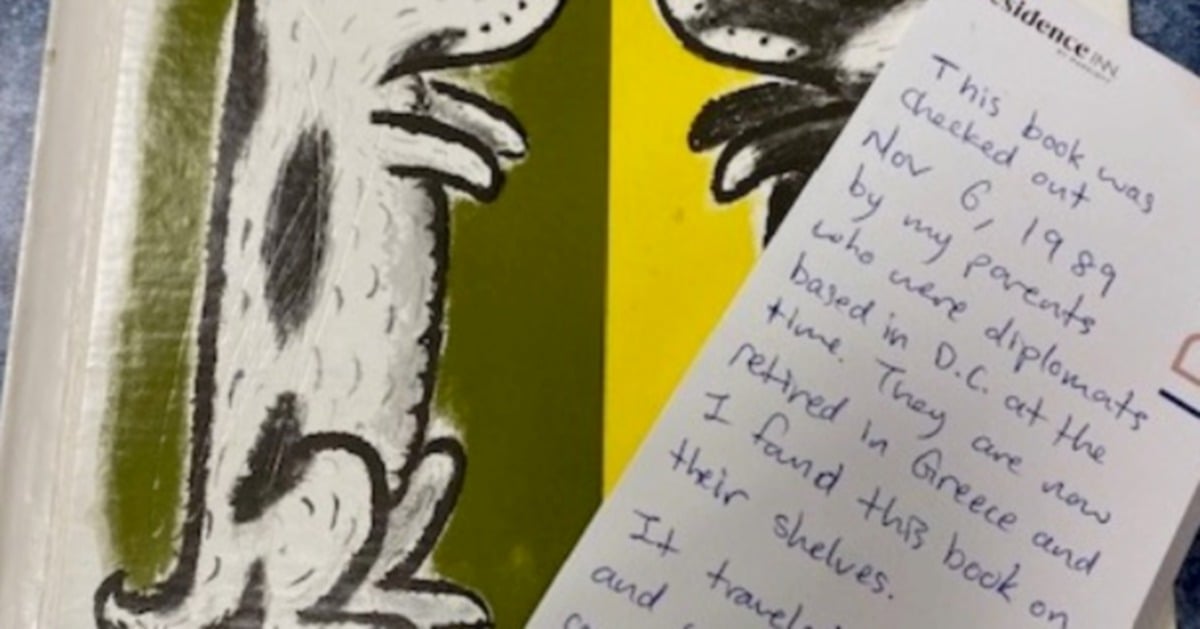 esidence INN
This book was
checked out
Nov 6, 1989
by my parents
who were diplomats
based in D.C. at the
time. They are now
retired in Greece and
I fand this book on
their shelves.
It
and